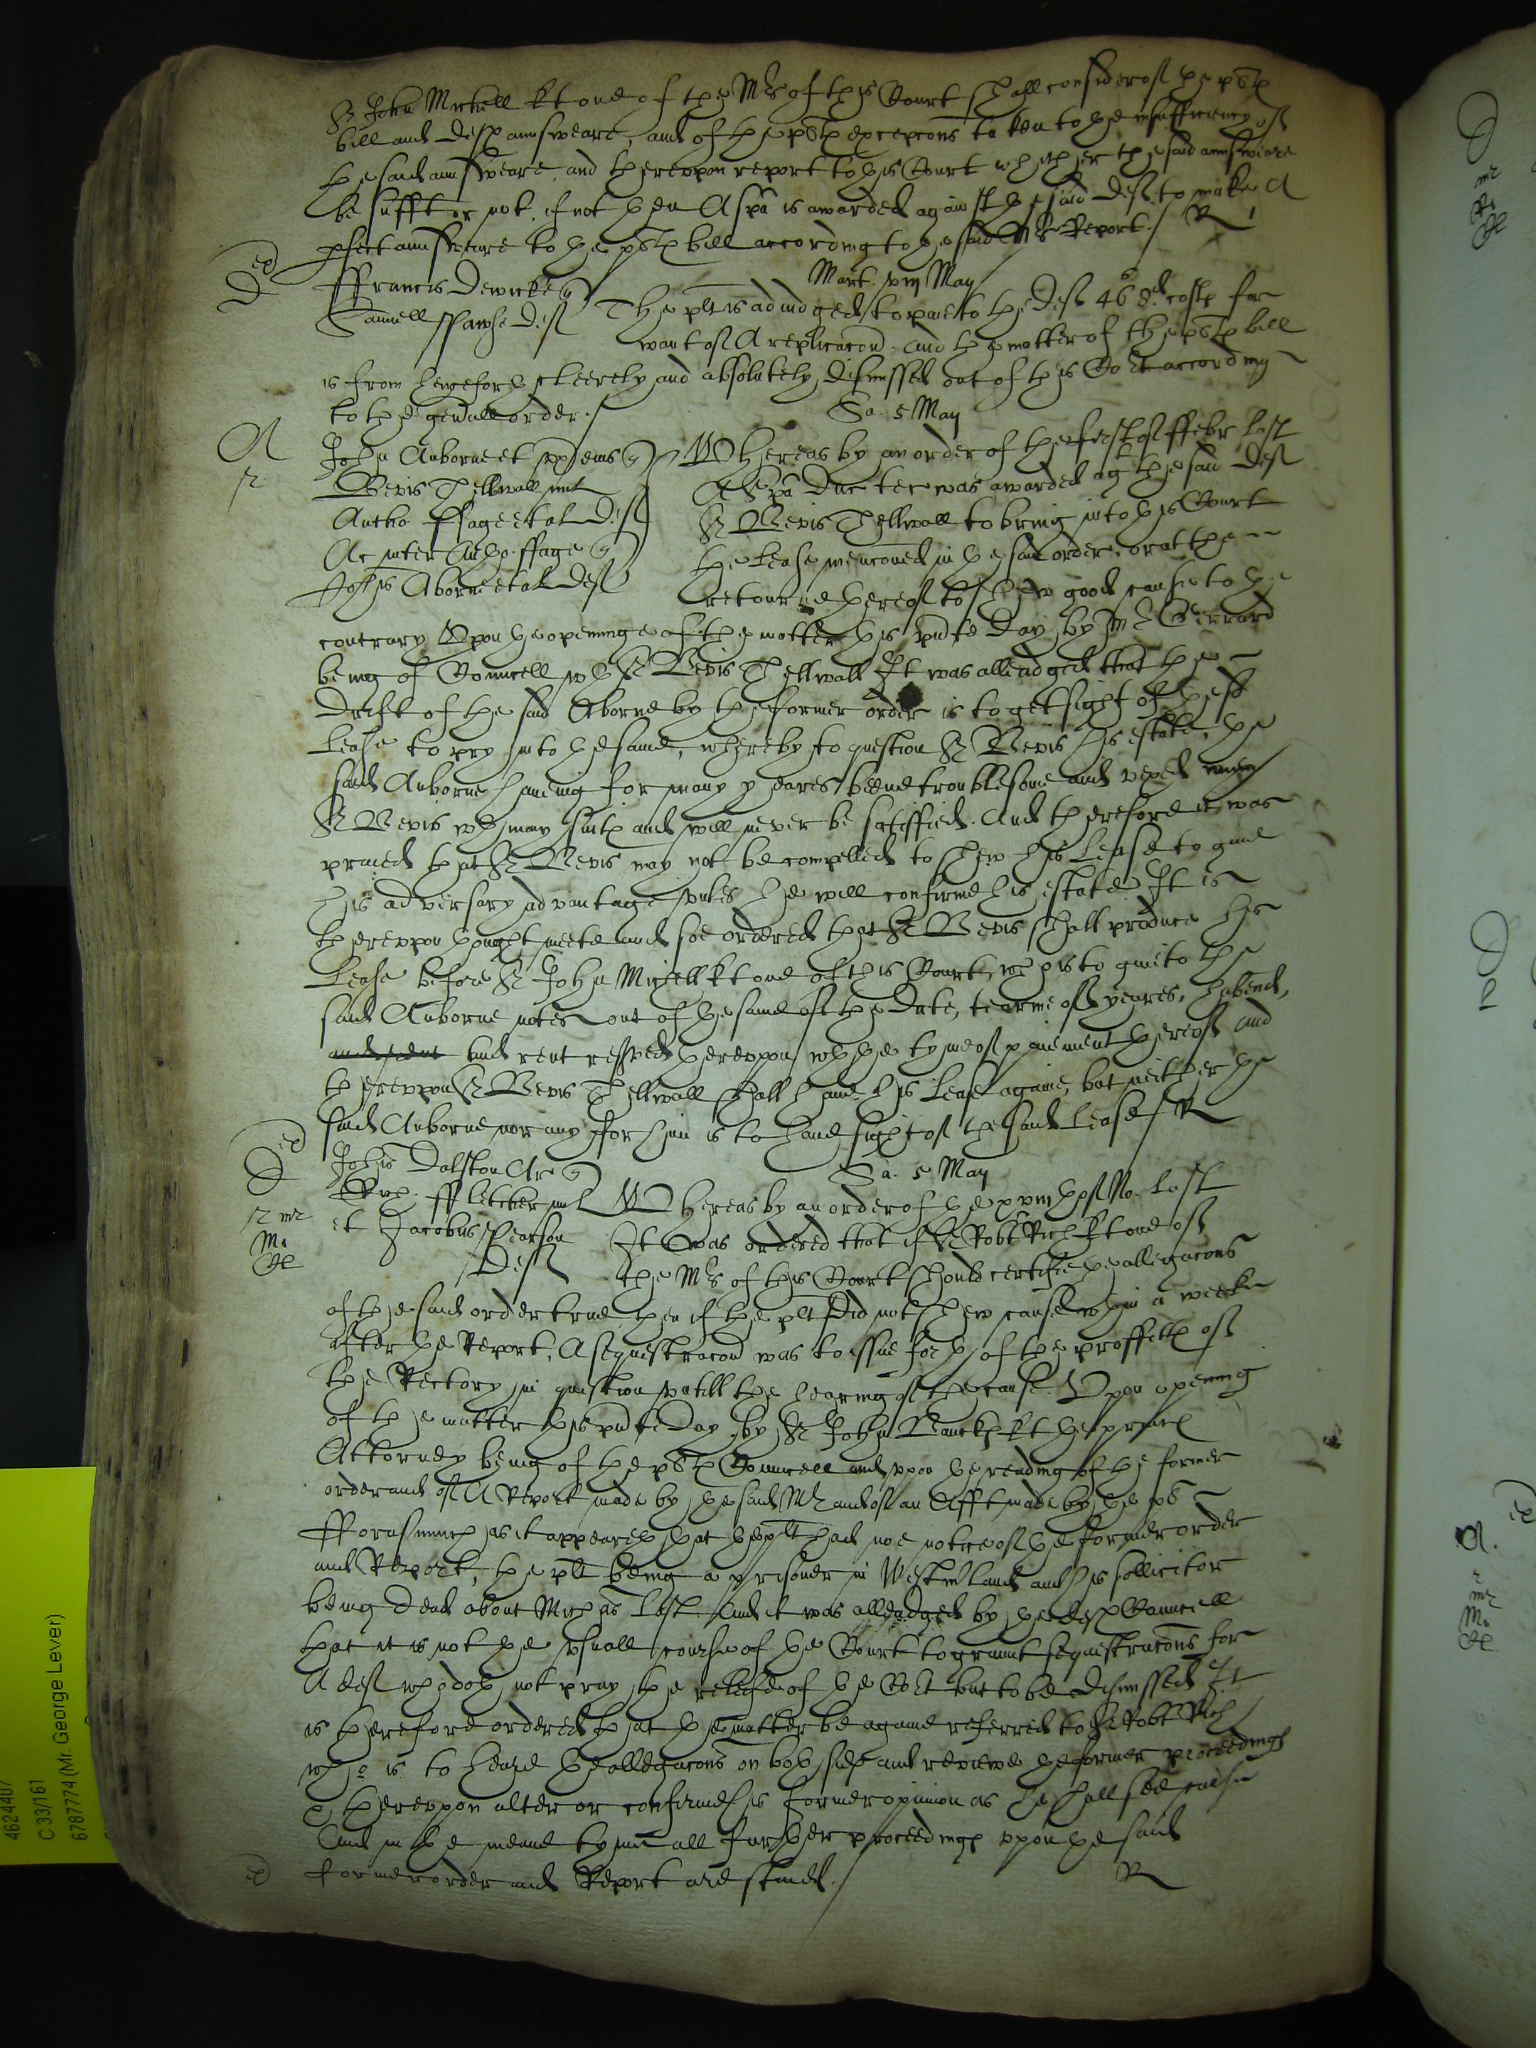 Sr John Mickell kt one of the Mrs of this Court shall consider of the plts
bill and defts answeare, and of the plts excepcons taken to the insufficiency of
the said answeare, and thereupon report to this Court whether the said answeare
be sufft or not, if not then A spa is awarded against the said deft to make A
pfect answeare to the plts bill according to the said Mrs Report. R
Mart. viij May
ffrancis Dewicke q
Samuell deft The plt is adiudged to paie to the deft 46s 8d costs for
want of A replicacon. And the matter of the plts bill
is from henceforth cleerely and absolutely dismissed out of this Cort according
to the generall order.
Sa. 5 May
John Auborne et q Whereas by an order of the first of ffebr last
Bevis Thellwall mil A Spa Duc tec was awarded agt the said deft
Antho. ffage et al deft Sr Bevis Thellwall to bring into this Court
Ac inter Antho. ffage q the Lease menconed in the said order, or at the
Johis Aborne et al deft retourne thereof to shew good cause to the
contrary Upon the openinge of the matter this pnte day by Mr Gerrard
being of Councell wth Sr Bevis Thellwall It was alleadged that the
drift of the said Aborne by the former order is to get sight of the sd
Lease to pry into the same, whereby to question Sr Bevis his estate, the
said Auborne haueing for many yeares beene troublesome and vexed
Sr Bevis wth many suits and will never be satisfied. And therefore it was
praied that Sr Bevis may not be compelled to shew his Lease to giue
his adversary advantage vnles he will confirme his estate It is
thereuppon thought meete and soe ordered that Sr Bevis shall produce his
Lease before Sr John Michell kt one of this Court, wch is to giue to the
said Auborne notes out of the same of the date, tearme of yeares, habend,
and rent and rent reserved thereuppon wth the tyme of paiement thereof and
thereuppon Sr Bevis Thellwall shall haue his Lease againe, but neither the
said Auborne nor any for him is to haue sight of the said Lease R
Sa. 5 May
Johis Dalston Ar q
ffletcher mil Whereas by an order of the xviijth of No. last
et Jacobus Pearson It was ordered that if Sr Robt Rich kt one of
deft the Mrs of this Court should certifie the allegacons
of the said order true, then if the plt did not shew cause wthin a weeke
after the Report, A sequestracon was to issue forth of the proffitts of
the Rectory in question untill the hearing of the cause. Upon opening
of the matter this pnte day by Sr John Banckes kt the princes
Attorney being of the plts Councell and uppon the reading of the former
order and of A Report made by the said Mr and of an Afft made by the
fforasmuch as it appeareth that the plt had noe notice of the former order
and Report, the plt being a prisoner in Westmland and his sollicitor
being dead about Michas last. And it was alleadged by the Councell
that it is not the usuall course of the Court to graunt sequestracons for
A deft wch doth not pray the releife of the Cort but to be dismissed It
is therefore ordered that the matter be againe referred to Sr Robt Rich
who is to heare the allegacons on both sides and reveiwe the former proceedings
& thereuppon alter or confirme his former opinion as he shall see cause
And in the meane tyme all further proceedings uppon the said
former order and Report are staied. R
4624407
C 33/161
6787774 (Mr. George Lever)